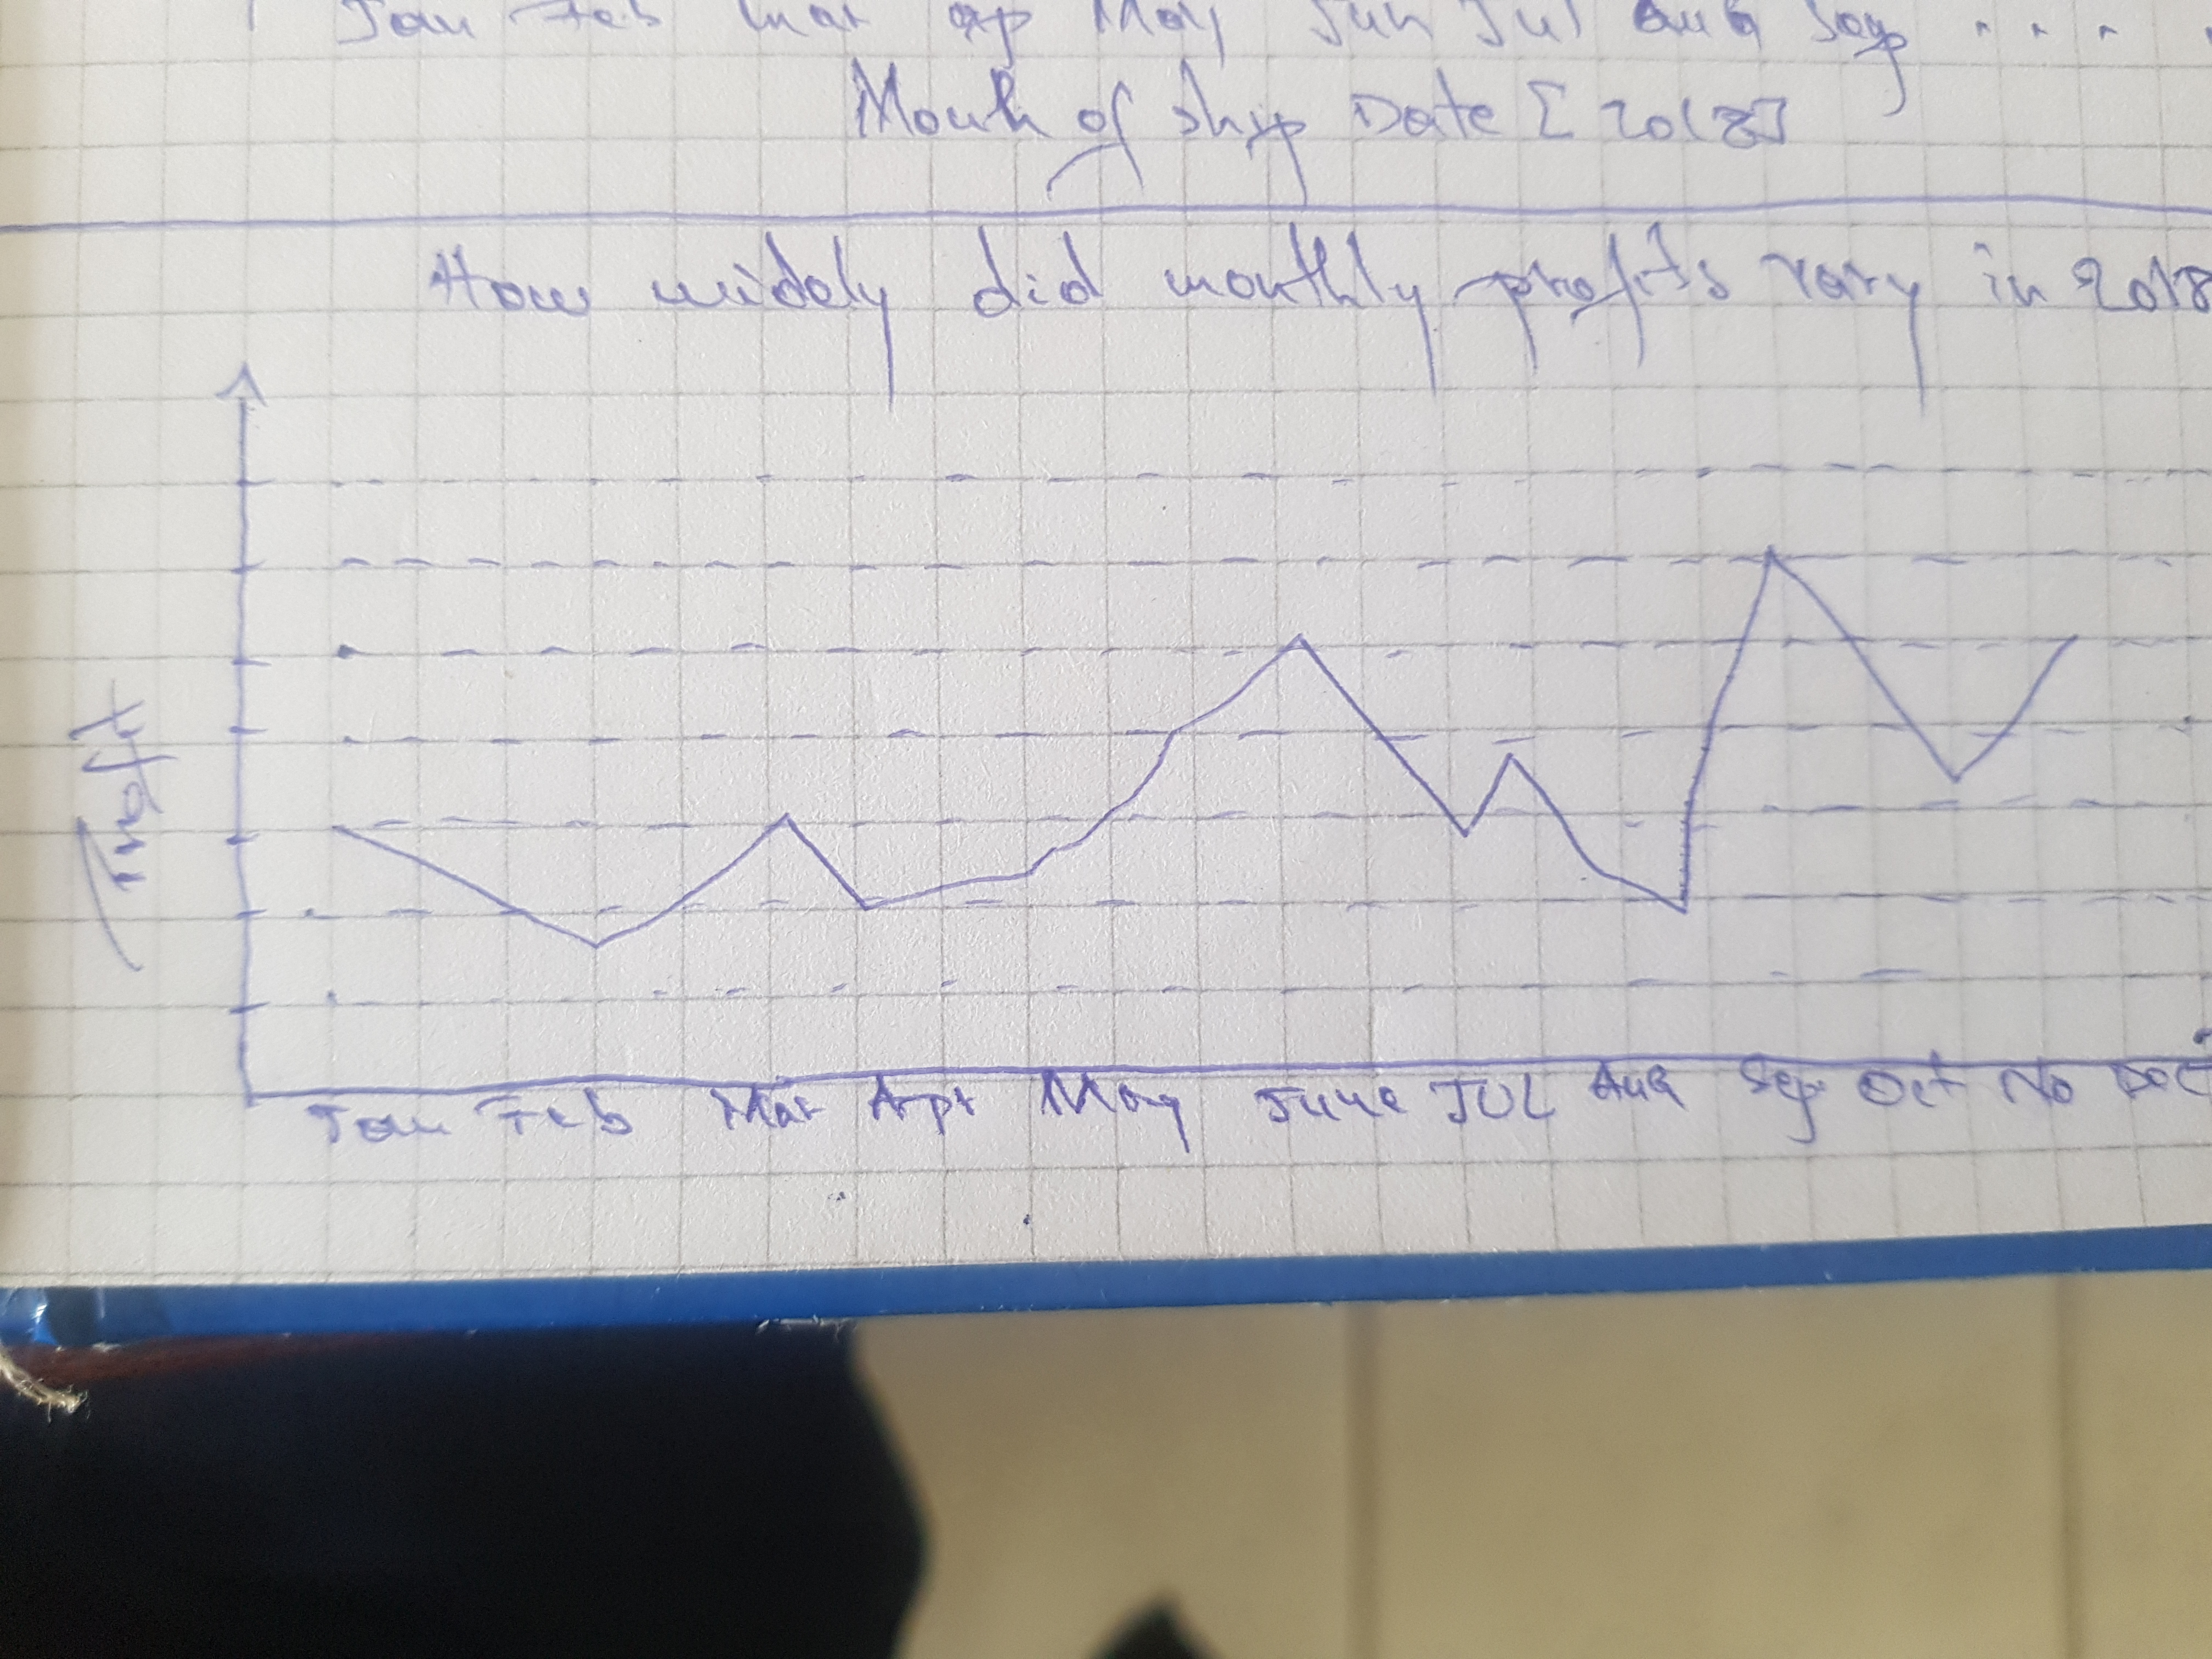 Jan Feb Mar ap May Jun Jul aug Sep " " "
Month of Ship Date [2018]
How widely did monthly profits vary in 2018
Profit
Jan Feb Mar Apr May June JUL AUG Sep Oct No Dec